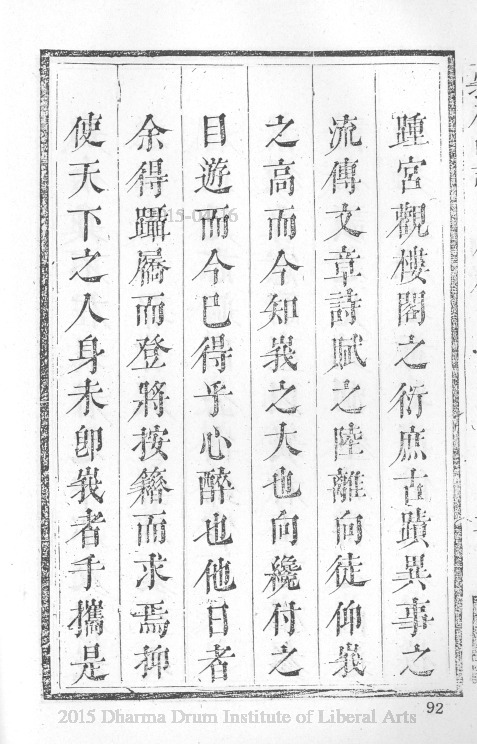 踵宮觀樓閣之衍庶古蹟異事之
流傳文章詩賦之陸離向徒仰峩
之高而今知峩之大也向纔付之
目遊而今巳得乎心醉也他日者
余得躡屩而登將按籍而求焉抑
使天下之人身未卽峩者手攜是
92
2015 Dharma Drum Institute of Liberal Arts